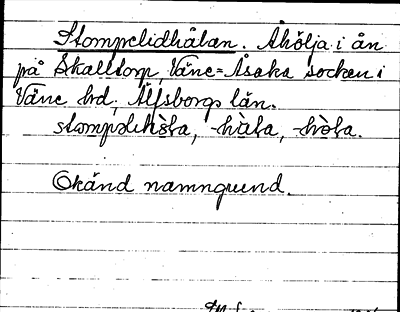 Stompelidhålan. Åhölja i ån
på Skalltorp, Väne-Åsaka socken i
Väne hd, Älfsborgs län.
-håla, -hòla.
Okänd namngrund.